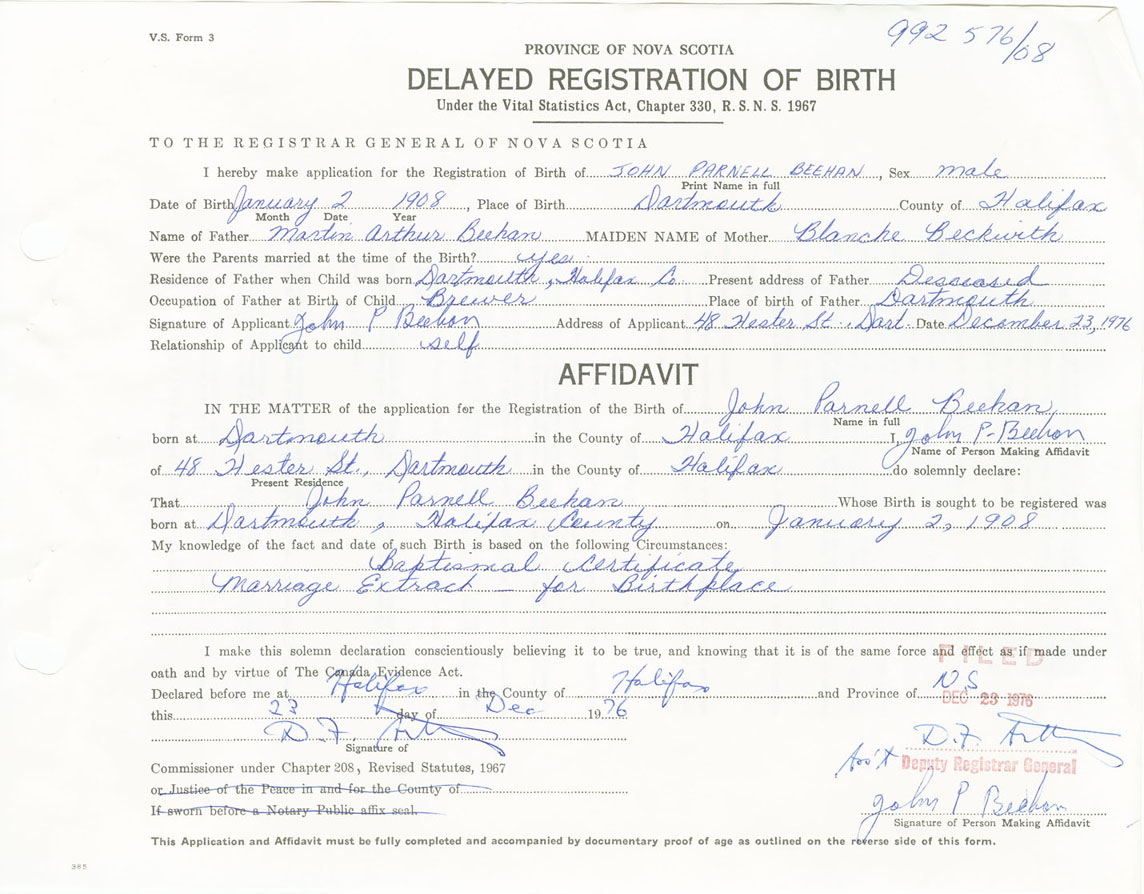 V.S. Form 3
992 576/08
PROVINCE OF NOVA SCOTIA
DELAYED REGISTRATION OF BIRTH
Under the Vital Statistics Act, Chapter 330, R.S.N.S. 1967
TO THE REGISTRAR GENERAL OF NOVA SCOTIA
I hereby make application for the Registration of Birth of JOHN PARNELL BEEHAN, Sex male
Print Name in full
Date of Birth January 2 1908, Place of Birth Dartmouth County of Halifax
Month Date Year
Name of Father Martin Arthur Beehan MAIDEN NAME of Mother Blanche Beckwith
Were the Parents married at the time of the Birth? yes
Residence of Father when Child was born Dartmouth, Halifax Co. Present address of Father Desceased
Occupation of Father at Birth of Child Brewer Place of birth of Father Dartmouth
Signature of Applicant John P Beehan Address of Applicant 48 Hester St., Dart. Date December 23, 1976
Relationship of Applicant to child self
AFFIDAVIT
IN THE MATTER of the application for the Registration of the Birth of John Parnell Beehan,
Name in full
born at Dartmouth in the County of Halifax I, John P. Beehan
Name of Person Making Affidavit
of 48 Hester St., Dartmouth in the County of Halifax do solemnly declare:
Present Residence
That John Parnell Beehan Whose Birth is sought to be registered was
born at Dartmouth, Halifax County on January 2, 1908
My knowledge of the fact and date of such Birth is based on the following Circumstances:
Baptismal Certificate
Marriage Extract — for Birthplace
I make this solemn declaration conscientiously believing it to be true, and knowing that it is of the same force and effect as if made under
FILED
oath and by virtue of The Canada Evidence Act.
Declared before me at Halifax in the County of Halifax and Province of N.S.
DEC 23 1976
this 23 day of Dec 1976
D.F.
D.F.
Signature of
Ass't Deputy Registrar General
Commissioner under Chapter 208, Revised Statutes, 1967
or Justice of the Peace in and for the County of
John P Beehan
If sworn before a Notary Public affix seal.
Signature of Person Making Affidavit
This Application and Affidavit must be fully completed and accompanied by documentary proof of age as outlined on the reverse side of this form.
385